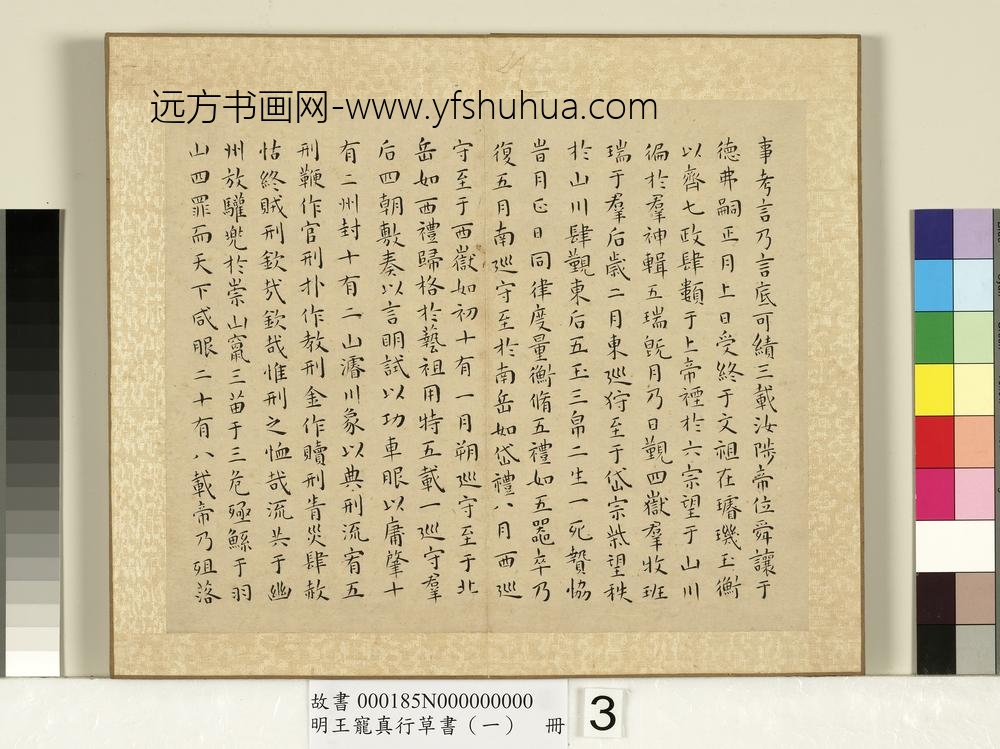 远方书画网-www.yfshuhua.com
事考言乃言底可績三載汝陟帝位舜讓于
德弗嗣正月上日受終于文祖在璿璣玉衡
以齊七政肆類于上帝禋於六宗望于山川
徧於羣神輯五瑞旣月乃日覲四嶽羣牧班
瑞于羣后歲二月東巡狩至于岱宗柴望秩
於山川肆覲東后五玉三帛二生一死贄恊
旹月正日同律度量衡脩五禮如五器卒乃
復五月南巡守至於南岳如岱禮八月西巡
守至于西嶽如初十有一月朔巡守至于北
岳如西禮歸格於藝祖用特五載一巡守羣
后四朝敷奏以言明試以功車服以庸肇十
有二州封十有二山濬川象以典刑流宥五
刑鞭作官刑扑作教刑金作贖刑眚災肆赦
怙終賊刑欽哉欽哉惟刑之恤哉流共于幽
州放驩兜於崇山竄三苗于三危殛鯀于羽
山四罪而天下咸服二十有八載帝乃殂落
故書 000185N000000000
明王寵真行草書（一） 冊
3